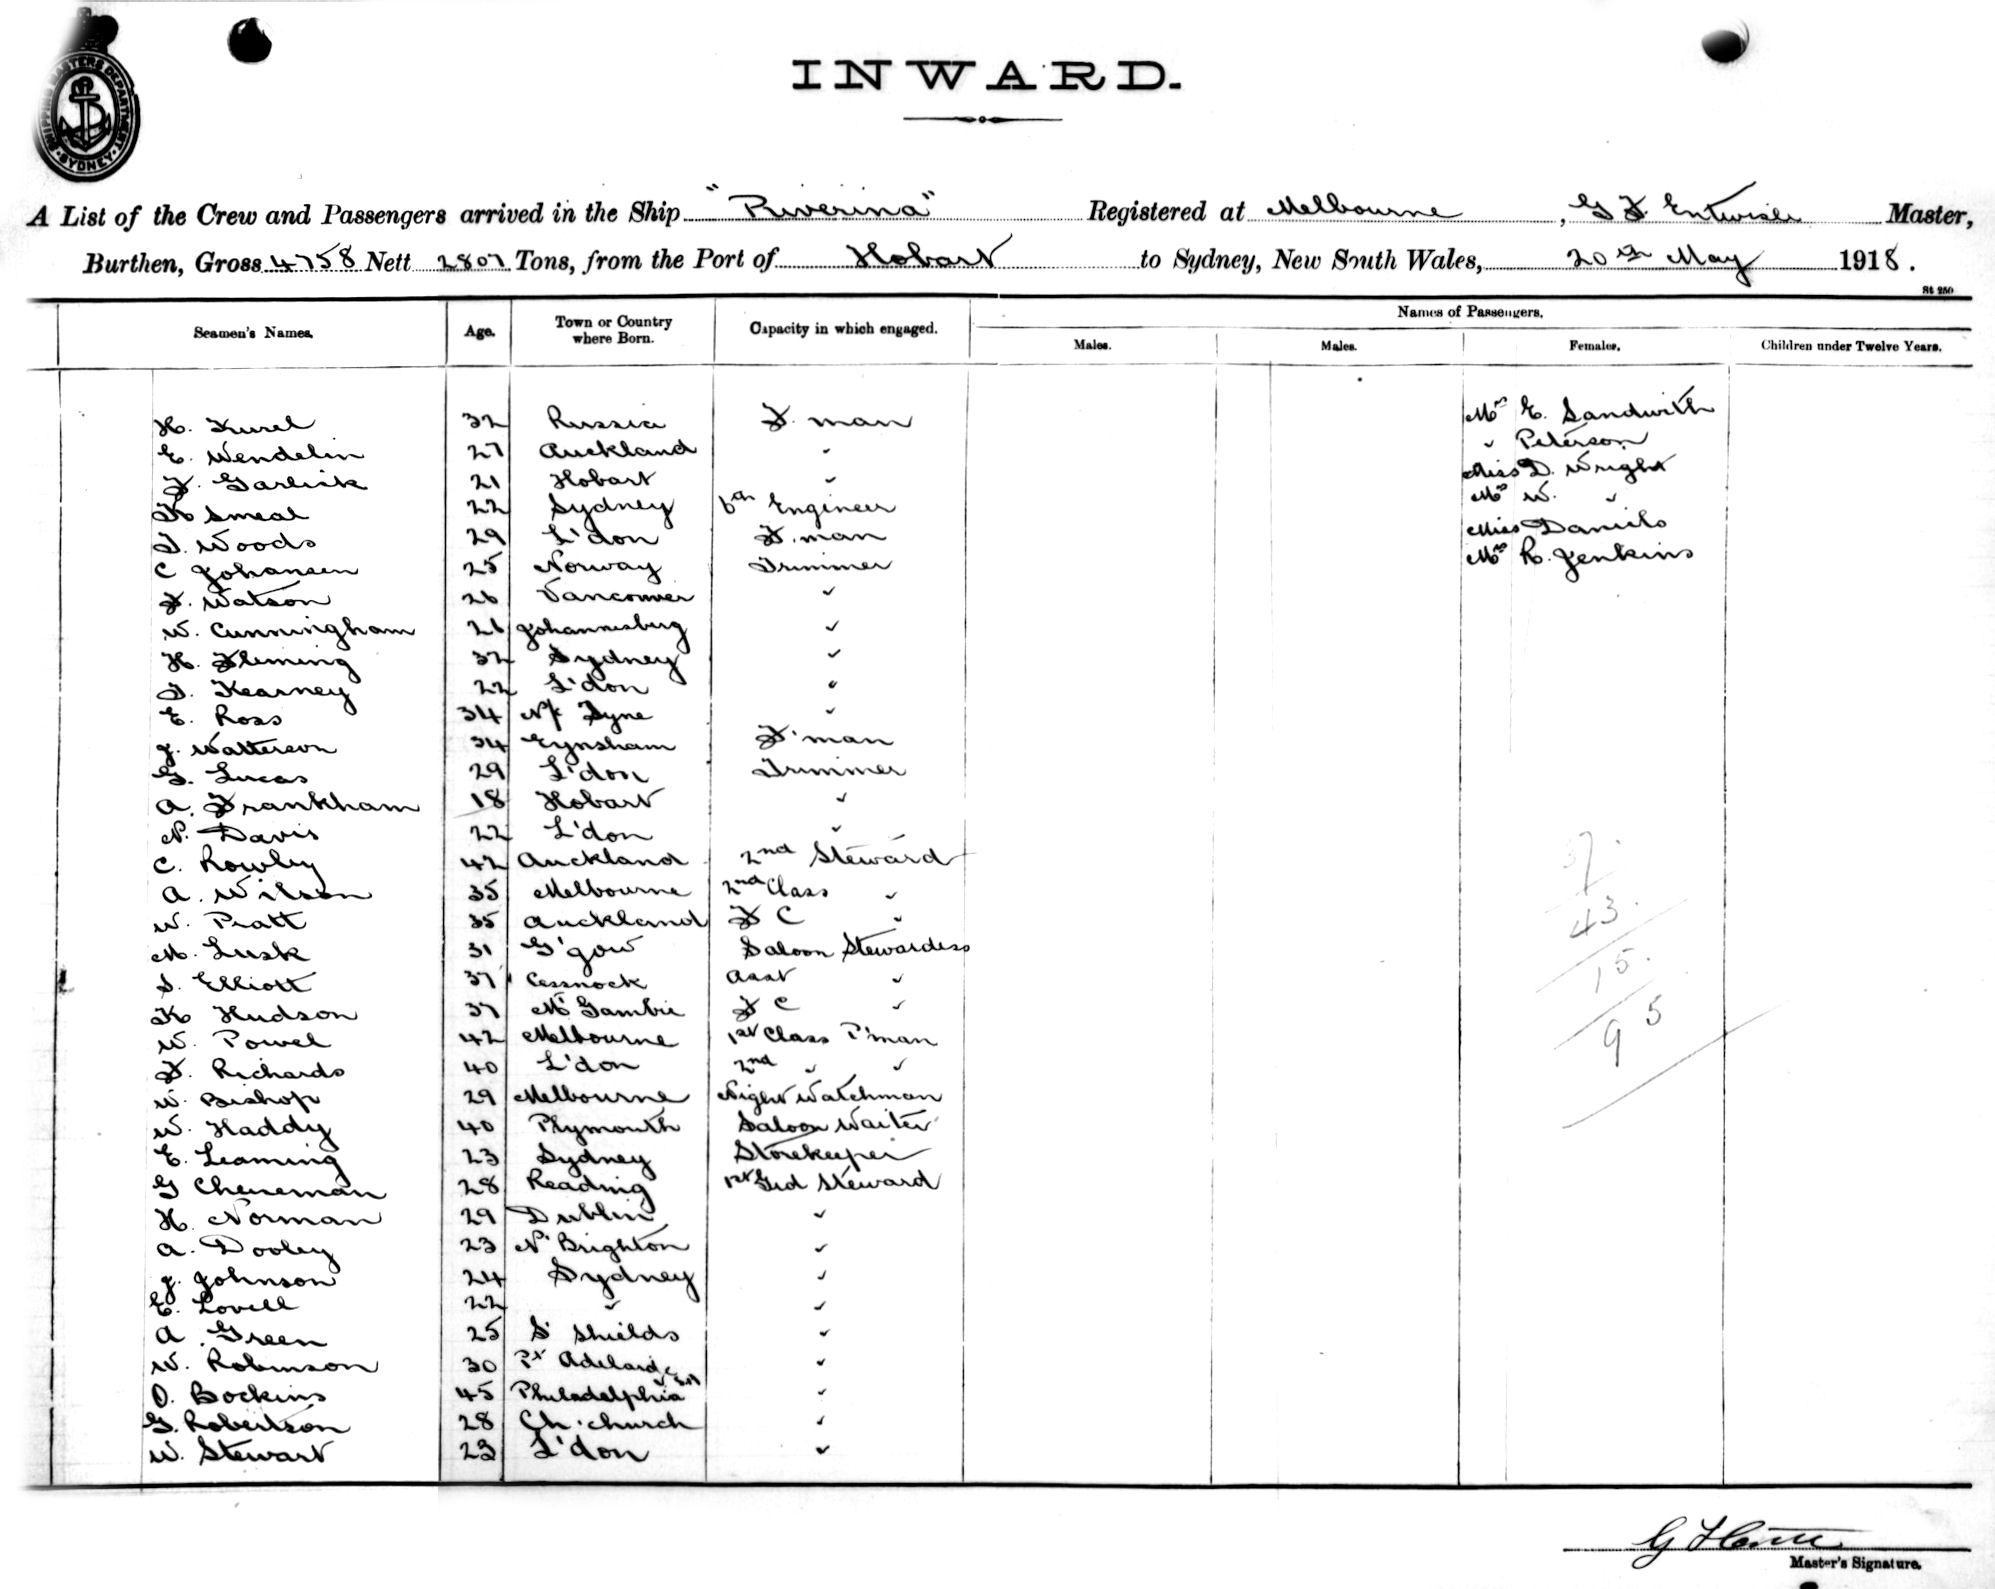 SHIPPING MASTERS DEPARTMENT · SYDNEY ·
INWARD.
A List of the Crew and Passengers arrived in the Ship "Riverina" Registered at Melbourne, G F. Entwisle Master,
Burthen, Gross 4758 Nett 2807 Tons, from the Port of Hobart to Sydney, New South Wales, 20th May 1918.
St 250
Seamen's Names. Age. Town or Country where Born. Capacity in which engaged. Names of Passengers.
Males. Males. Females. Children under Twelve Years.
H. Kurel 32 Russia F. man Mrs E. Sandwith
E. Wendelin 27 Auckland " " Peterson
F. Garlick 21 Hobart " Miss D. Wright
K Smeal 22 Sydney 6th Engineer Mrs W. "
T. Woods 29 L'don F. man Miss Daniels
C Johansen 25 Norway Trimmer Mrs R. Jenkins
F. Watson 26 Vancouver "
W. Cunningham 26 Johannesberg "
H. Fleming 32 Sydney "
T. Kearney 22 L'don "
E. Ross 34 N/c Tyne "
J. Watterson 34 Eynsham F'man
G. Lucas 29 L'don Trimmer
A. Frankham 18 Hobart "
N. Davis 22 L'don "
C. Rowley 42 Auckland 2nd Steward
A. Wilson 35 Melbourne 2nd Class "
W. Pratt 35 Auckland F C "
M. Lusk 31 G'gow Saloon Stewardess
S. Elliott 37 Cessnock Asst "
K Hudson 37 Mt Gambier F C "
W. Powel 42 Melbourne 1st Class P'man
F. Richards 40 L'don 2nd " "
W. Bishop 29 Melbourne Night Watchman
W. Haddy 40 Plymouth Saloon Waiter
E. Leaming 23 Sydney Storekeeper
G Cheneman 28 Reading 1st Grd Steward
H. Norman 29 Dublin "
A. Dooley 23 N. Brighton "
J. Johnson 24 Sydney "
E. Lovell 22 " "
A. Green 25 S. Shields "
W. Robinson 30 Pt Adelaide "
O. Bockins 45 Philadelphia "
G. Robertson 28 Ch. church "
W. Stewart 23 L'don "
37.
43.
15.
95
Master's Signature.